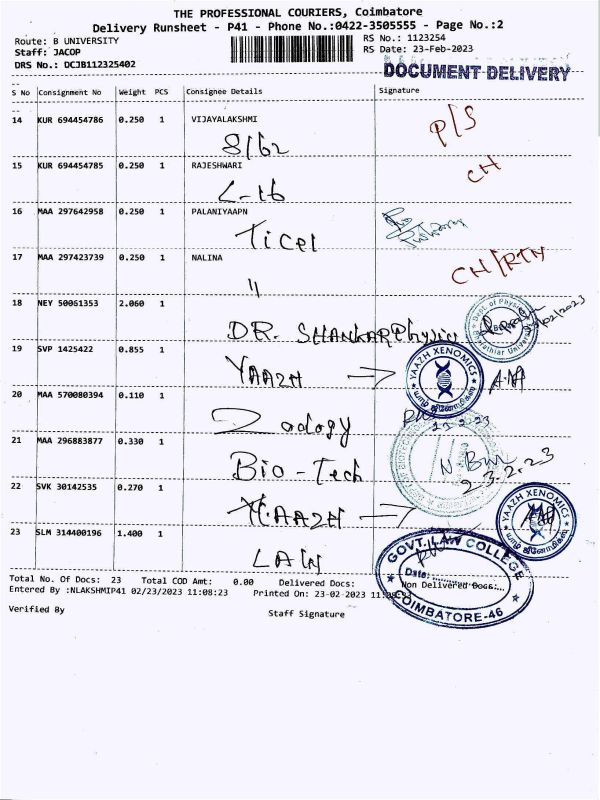 THE PROFESSIONAL COURIERS, Coimbatore
Delivery Runsheet - P41 - Phone No.:0422-3505555 - Page No.:2
Route: B UNIVERSITY RS No.: 1123254
Staff: JACOP RS Date: 23-Feb-2023
DRS No.: DCJB112325402
DOCUMENT DELIVERY
S No Consignment No Weight PCS Consignee Details Signature
14 KUR 694454786 0.250 1 VIJAYALAKSHMI
8/62 P/S
15 KUR 694454785 0.250 1 RAJESHWARI
L-16 CH
16 MAA 297642958 0.250 1 PALANIYAAPN
TiCel
17 MAA 297423739 0.250 1 NALINA
" CH/RTN
18 NEY 50061353 2.060 1
DR. SHANKAR Physics
Dept. of Physics
19 SVP 1425422 0.855 1
YAAZH
YAAZH XENOMICS
யாழ் ஜீனோமிக்ஸ்
20 MAA 570080394 0.110 1
Zoology 23.2.23
21 MAA 296883877 0.330 1
Bio-Tech 23.2.23
22 SVK 30142535 0.270 1
YAAZH
YAAZH XENOMICS
யாழ் ஜீனோமிக்ஸ்
23 SLM 314400196 1.400 1
LAW
GOVT. LAW COLLEGE
Date:
COIMBATORE-46
Total No. Of Docs: 23 Total COD Amt: 0.00 Delivered Docs: Non Delivered Docs:
Entered By :NLAKSHMIP41 02/23/2023 11:08:23 Printed On: 23-02-2023 11:08:23
Verified By Staff Signature